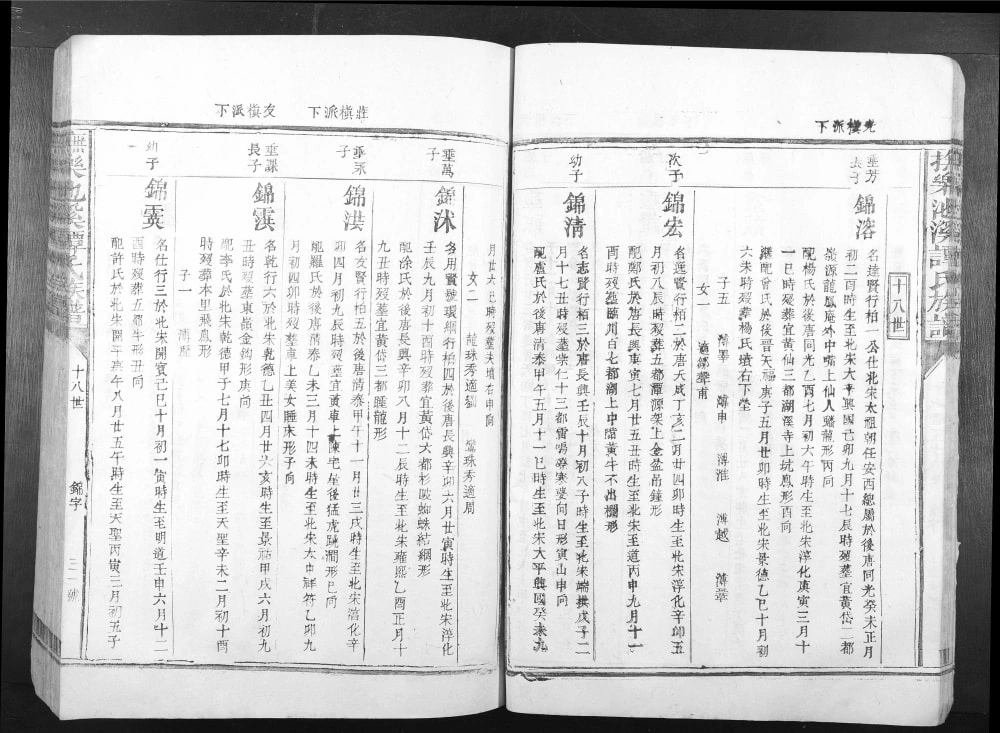 光樓派下
十八世
垂芳
長子
錦溶
名達賢行柏一公仕北宋太祖朝任安西總屬於後唐同光癸未正月
初二酉時生至北宋太平興國己卯九月十七辰時歿葬宜黃岱二都
嚴源龍鳳庵外中嘴上仙人蟠龍形丙向
配楊氏於後唐同光乙酉七月初六午時生至北宋淳化庚寅三月十
一巳時歿葬宜黃仙三都湖溪寺上坑鳳形酉向
繼配曾氏於後晉天福庚子五月廿卯時生至北宋景德乙巳十月初
六未時歿葬楊氏墳右下塋
子五
溥申
溥淮
溥越
溥華
女二
次子
錦宏
名選賢行柏二於唐天成丁亥二月廿四卯時生至北宋淳化辛卯五
月初八辰時歿葬五都潭源架上金盆吊鐘形
配鄭氏於唐長興庚寅七月廿五丑時生至北宋至道丙申九月十一
酉時歿葬臨川白七都湖上中壋黃牛不出欄形
幼子
錦清
名志賢行柏三於唐長興壬辰十月初八子時生至北宋端拱戊子二
月十七丑時歿葬崇仁十三都雷鳴寮寒婆向日形寅山申向
配盧氏於後唐清泰甲午五月十一巳時生至北宋太平興國癸未九
撫樂池溪譚氏族譜
莊槙派下
友槙派下
月廿六巳時歿葬夫墳右申向
女二
龍珠秀適鄒
鶯珠秀適周
垂萬
子
錦沐
名用賢號環綱行柏四於後唐長興辛卯六月廿寅時生至北宋淳化
壬辰九月初十酉時歿葬宜黃岱六都杉陂蜘蛛結網形
配涂氏於後唐長興辛卯八月十二辰時生至北宋雍熙乙酉正月十
九丑時歿葬宜黃岱三都睡龍形
垂永
子
錦洪
名友賢行柏五於後唐清泰甲午十一月廿三戌時生至北宋淳化辛
卯四月初九辰時歿葬宜黃車上陳宅屋後猛虎跳澗形巳向
配羅氏於後唐清泰乙未三月十四未時生至北宋大中祥符乙卯九
月初四卯時歿葬車上美女睡床形子向
垂謀
長子
錦霙
名乾行六於北宋乾德乙丑四月廿六亥時生至景祐甲戌六月初九
丑時歿葬東嶺金鈎形庚向
配李氏於北宋乾德甲子七月十七卯時生至天聖辛未二月初十酉
時歿葬本里飛鳳形
子一
溥歷
幼子
錦霬
名仕行三於北宋開寶己巳十月初一寅時生至明道壬申六月十二
酉時歿葬五都牛形丑向
配許氏於北宋開寶庚午八月廿五午時生至天聖丙寅三月初五子
撫樂池溪譚氏族譜
十八世
錦字
三一號